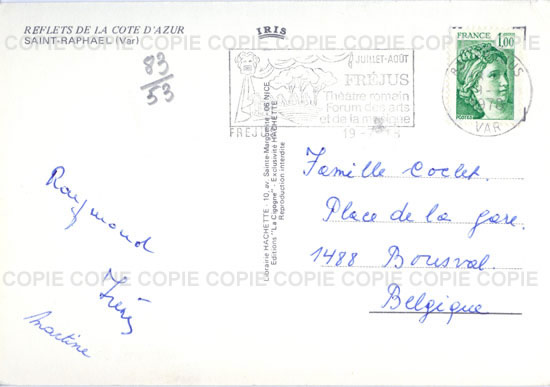 REFLETS DE LA COTE D'AZUR
SAINT-RAPHAEL (Var)
IRIS
83/53
JUILLET-AOÛT
FRÉJUS
Théâtre romain
Forum des arts
et de la musique
FRÉJUS
FRANCE
1,00
POSTES
VAR
COPIE COPIE COPIE COPIE COPIE COPIE COPIE COPIE
Librairie HACHETTE - 10, av. Sainte-Marguerite - 06 NICE
Editions "La Cigogne" - Exclusivité HACHETTE
Reproduction interdite
COPIE COPIE COPIE COPIE COPIE COPIE COPIE COPIE
Raymond
Irène
Martine
Famille Coclet.
Place de la gare.
1488 Bousval.
Belgique
COPIE COPIE COPIE COPIE COPIE COPIE COPIE COPIE